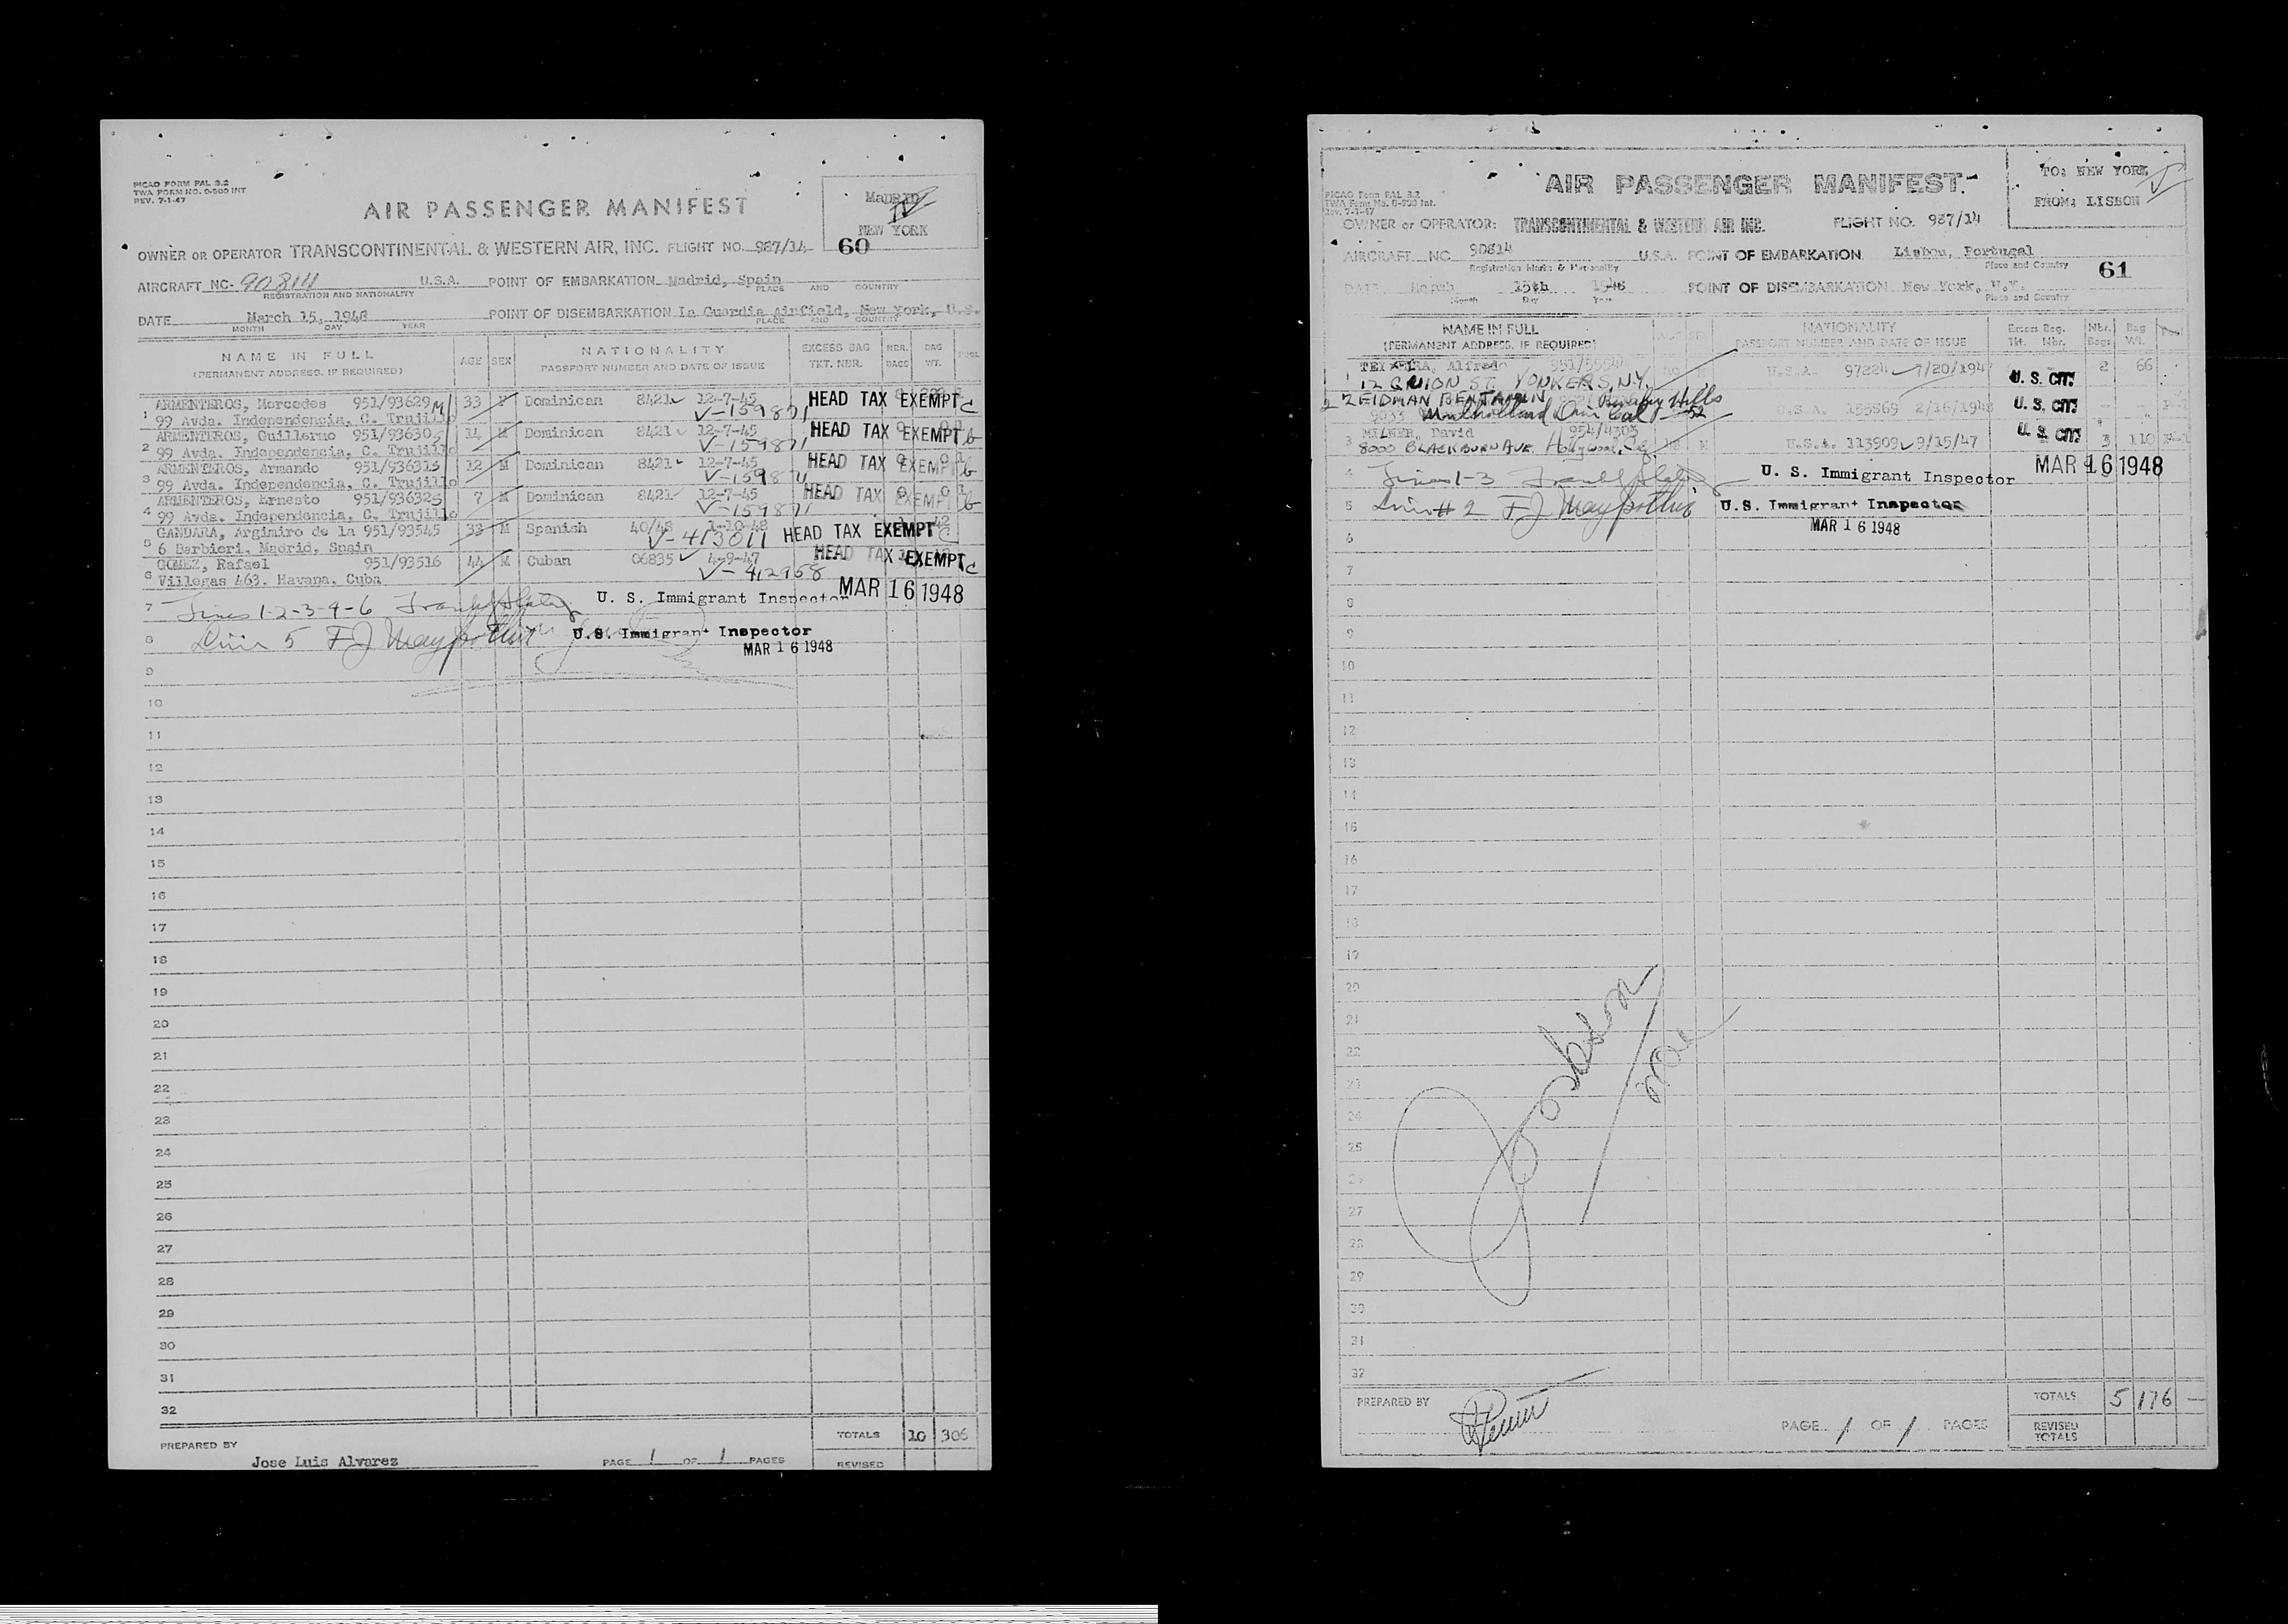 PICAO FORM PAL 3.2
TWA FORM NO. 0-900 INT
REV. 7-1-47
AIR PASSENGER MANIFEST
Madrid
NEW YORK
60
OWNER OR OPERATOR TRANSCONTINENTAL & WESTERN AIR, INC. FLIGHT NO. 987/14
AIRCRAFT NC- 90814 U.S.A. POINT OF EMBARKATION Madrid, Spain
REGISTRATION AND NATIONALITY PLACE AND COUNTRY
DATE March 15, 1948 POINT OF DISEMBARKATION La Guardia Airfield, New York, U.S.
MONTH DAY YEAR PLACE AND COUNTRY
NAME IN FULL AGE SEX NATIONALITY EXCESS BAG NBR. BAG POOL
(PERMANENT ADDRESS, IF REQUIRED) PASSPORT NUMBER AND DATE OF ISSUE TKT. NBR. BAGS WT.
1 ARMENTEROS, Mercedes 951/93629 M 33 F Dominican 8421 12-7-45 HEAD TAX EXEMPT C
99 Avda. Independencia, C. Trujillo V-159871
2 ARMENTEROS, Guillermo 951/93630 S 14 M Dominican 8421 12-7-45 HEAD TAX EXEMPT b
99 Avda. Independencia, C. Trujillo V-159871
3 ARMENTEROS, Armando 951/93631 S 12 M Dominican 8421 12-7-45 HEAD TAX EXEMPT b
99 Avda. Independencia, C. Trujillo V-159871
4 ARMENTEROS, Ernesto 951/93632 S 7 M Dominican 8421 12-7-45 HEAD TAX EXEMPT b
99 Avda. Independencia, C. Trujillo V-159871
5 GANDARA, Argimiro de la 951/93545 33 M Spanish 40/48 1-10-48 HEAD TAX EXEMPT C
6 Barbieri, Madrid, Spain V-413011
6 GOMEZ, Rafael 951/93516 44 M Cuban 06835 4-9-47 HEAD TAX EXEMPT C
Villegas 463. Havana, Cuba V-412958
7 Lines 1-2-3-4-6 U. S. Immigrant Inspector MAR 16 1948
8 Line 5 U.S. Immigrant Inspector
MAR 16 1948
9
10
11
12
13
14
15
16
17
18
19
20
21
22
23
24
25
26
27
28
29
30
31
32
TOTALS 10 306
PREPARED BY
Jose Luis Alvarez PAGE 1 OF 1 PAGES REVISED
PICAO Form PAL 3.2
TWA Form No. 0-900 Int.
Rev. 7-1-47
AIR PASSENGER MANIFEST
TO: NEW YORK
FROM: LISBON
OWNER or OPERATOR: TRANSCONTINENTAL & WESTERN AIR INC. FLIGHT NO. 987/14
AIRCRAFT NC 90814 U.S.A. POINT OF EMBARKATION Lisbon, Portugal
Registration Marks & Nationality Place and Country
61
DATE March 15th 1948 POINT OF DISEMBARKATION New York, N.Y.
Month Day Year Place and Country
NAME IN FULL AGE SEX NATIONALITY Excess Bag. Nbr. Bag
(PERMANENT ADDRESS, IF REQUIRED) PASSPORT NUMBER AND DATE OF ISSUE Tkt. Nbr. Bags Wt.
1 TEIXEIRA, Alfredo U.S.A. 97224 7/20/1947 U. S. CIT. 2 66
12 UNION ST. YONKERS, N.Y.
2 ZEIDMAN BENJAMIN Beverly Hills U.S.A. 155869 2/16/1948 U. S. CIT.
9033 Mulholland Drive Cal 52
3 MILNER, David 954/4303 M U.S.A. 113909 9/15/47 U. S. CIT. 3 110
8000 BLACKBURN AVE. Hollywood, Cal.
4 Lines 1-3 U. S. Immigrant Inspector MAR 16 1948
5 Line # 2 U.S. Immigrant Inspector
MAR 16 1948
6
7
8
9
10
11
12
13
14
15
16
17
18
19
20
21
22
23
24
25
26
27
28
29
30
31
32
PREPARED BY
TOTALS 5 176 —
PAGE 1 OF 1 PAGES
REVISED
TOTALS